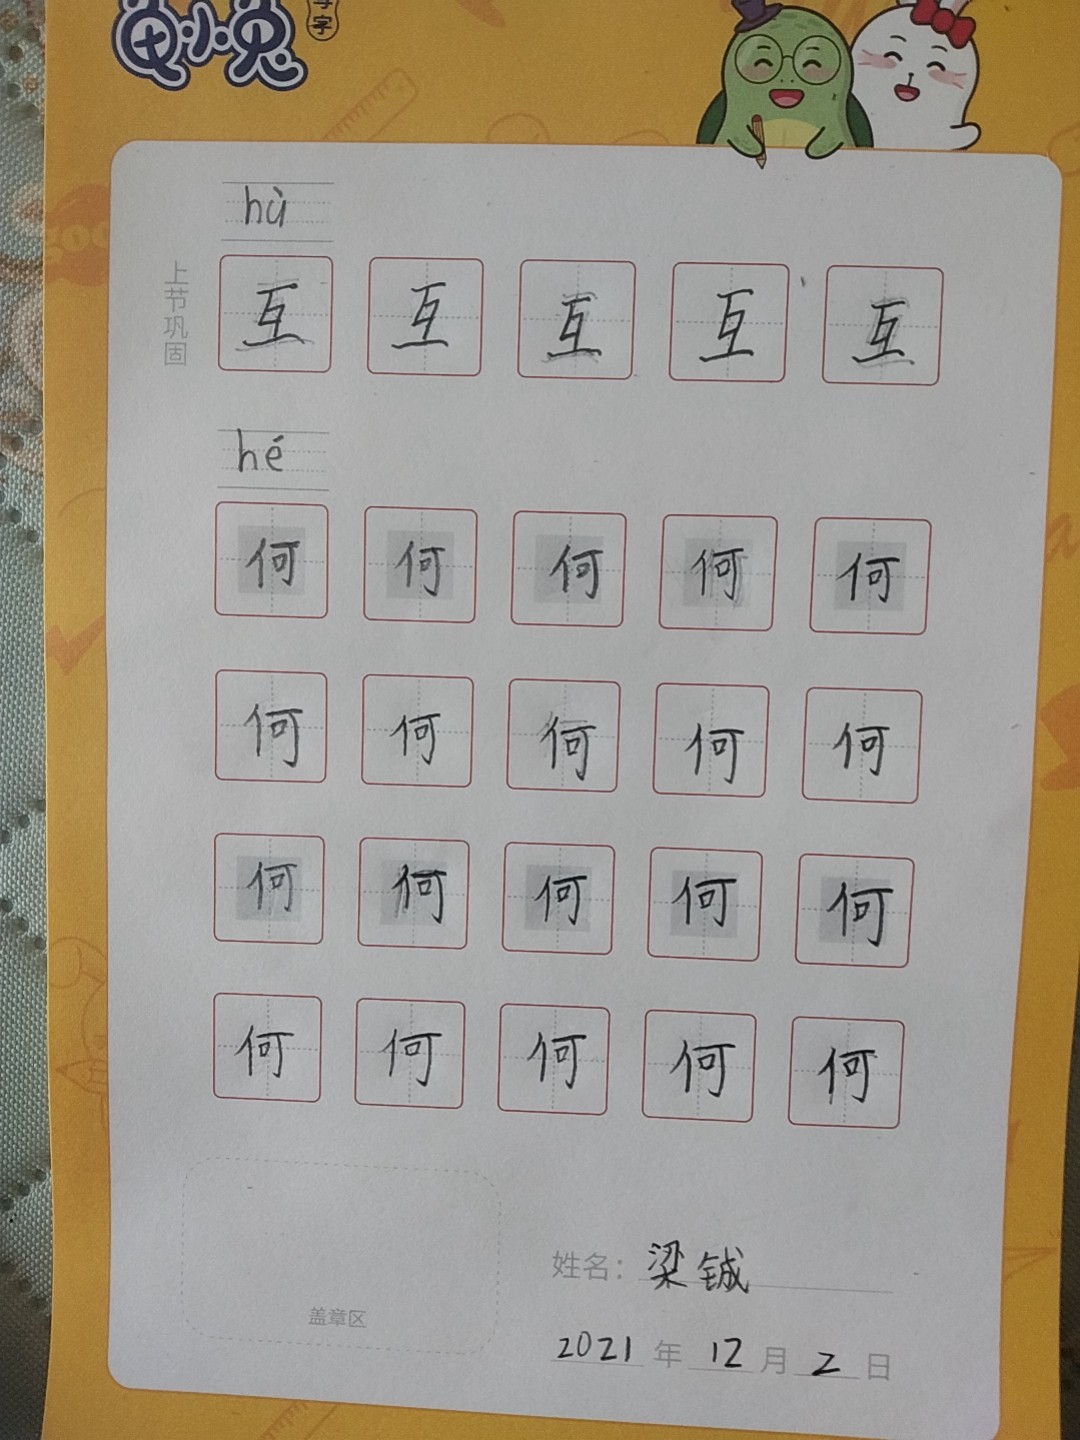 龟小兔
写字
hù
上节巩固
互 互 互 互 互
hé
何 何 何 何 何
何 何 何 何 何
何 何 何 何 何
何 何 何 何 何
姓名：梁铖
盖章区
2021 年 12 月 2 日